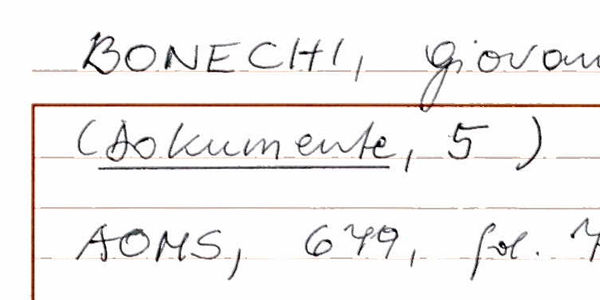 BONECHI, Giovan
(Dokumente, 5)
AOMS, 679, fol. 7